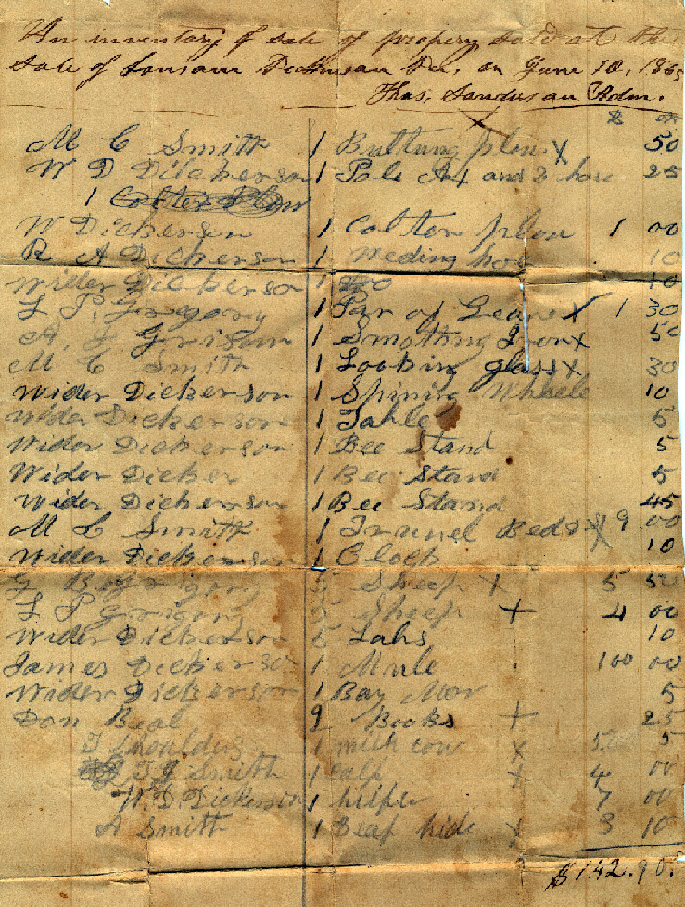 An inventory of sale of propery sold at the
Sale of Dickinsau Dec. on June 10, 186
Thos. Adm.
$
M C Smith 1 plow X 50
W D Dickerson 1 Pole Ax and 3 hose 25
1 Colter Plow
W Dickerson 1 Colter plow 1 00
R A Dickerson 1 Weding hoe 10
Wider Dickerson 1 Do 10
L P Gregory 1 Par of Geares X 1 30
A. J Grisam 1 Smothing Iron X 50
M C Smith 1 Looking glass X 30
Wider Dickerson 1 Spining Wheele 10
Wider Dickerson 1 Table 5
Wider Dickerson 1 Bee Stand 5
Wider Dicker 1 Bee Stand 5
Wider Dickerson 1 Bee Stand 45
M C Smith 1 Beds X 9 00
Wider Dickerson 1 Clock 10
5 Sheep X 5 50
L P 5 Sheep + 4 00
Wider Dickerson 5 10
James Dickerson 1 Mule 100 00
Wider Dickerson 1 Bay Mar 5
Don Beal 9 Books + 25
1 milk cow X 5
T J Smith 1 calf X 4 00
W. D. Dickerson 1 7 00
A Smith 1 Beaf hide X 3 10
$142.90.